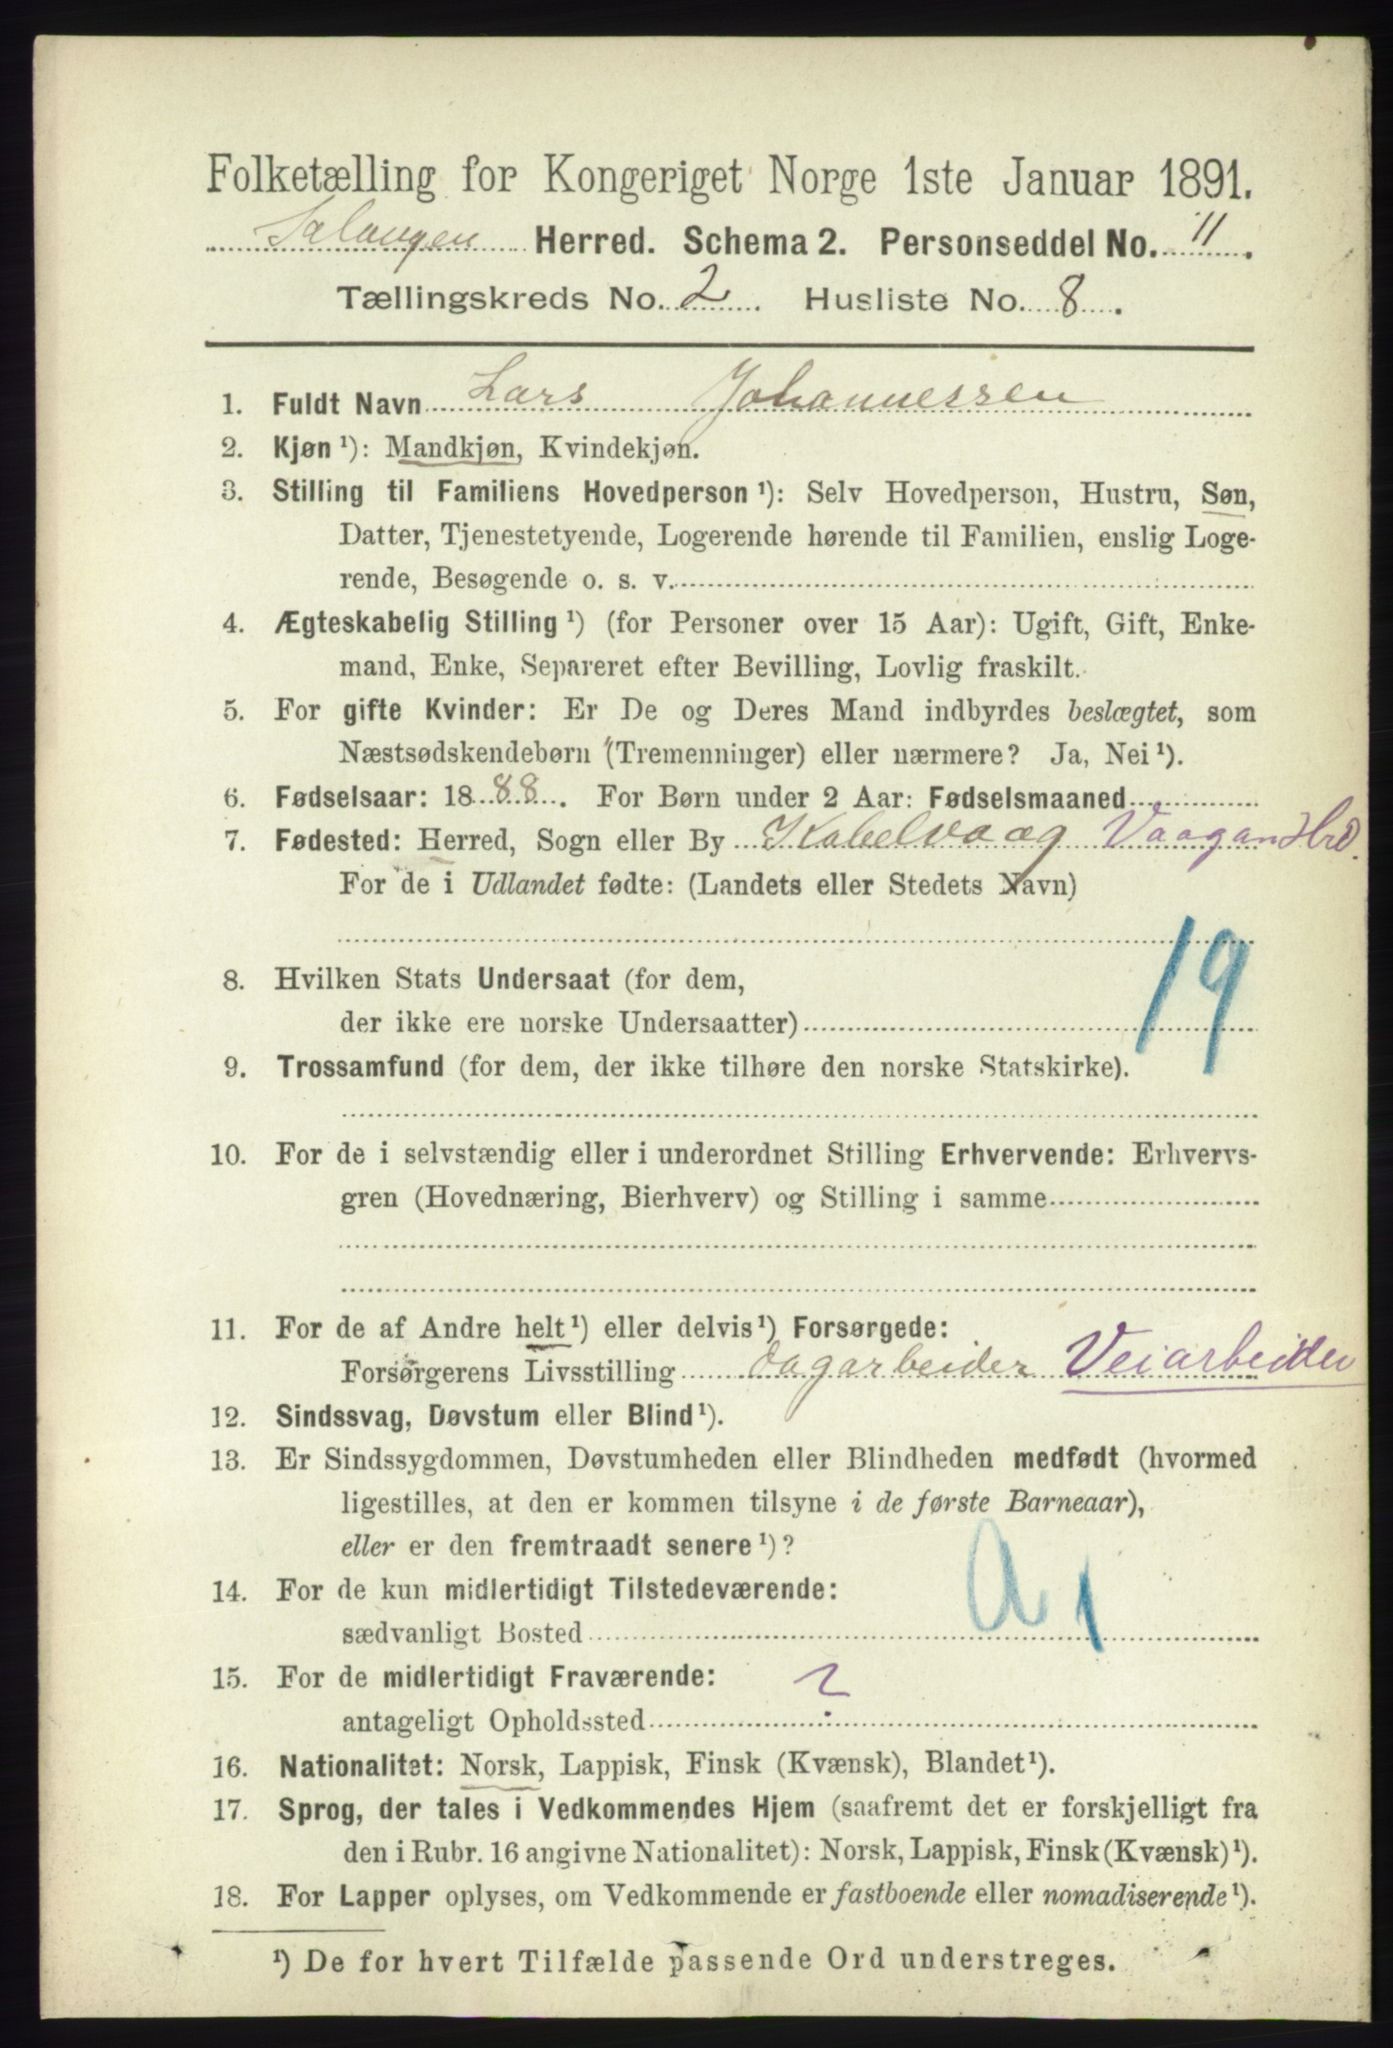 Folketælling for Kongeriget Norge 1ste Januar 1891.
Salangen Herred. Schema 2. Personseddel No. 11.
Tællingskreds No. 2. Husliste No. 8.
1. Fuldt Navn Lars Johannessen
2. Kjøn¹): Mandkjøn, Kvindekjøn.
3. Stilling til Familiens Hovedperson¹): Selv Hovedperson, Hustru, Søn,
Datter, Tjenestetyende, Logerende hørende til Familien, enslig Loge-
rende, Besøgende o. s. v.
4. Ægteskabelig Stilling¹) (for Personer over 15 Aar): Ugift, Gift, Enke-
mand, Enke, Separeret efter Bevilling, Lovlig fraskilt.
5. For gifte Kvinder: Er De og Deres Mand indbyrdes beslægtet, som
Næstsødskendebørn (Tremenninger) eller nærmere? Ja, Nei¹).
6. Fødselsaar: 1888. For Børn under 2 Aar: Fødselsmaaned
7. Fødested: Herred, Sogn eller By Kabelvaag Vaagan Hrd.
For de i Udlandet fødte: (Landets eller Stedets Navn)
19
8. Hvilken Stats Undersaat (for dem,
der ikke ere norske Undersaatter)
9. Trossamfund (for dem, der ikke tilhøre den norske Statskirke).
10. For de i selvstændig eller i underordnet Stilling Erhvervende: Erhvervs-
gren (Hovednæring, Bierhverv) og Stilling i samme
11. For de af Andre helt¹) eller delvis¹) Forsørgede:
Forsørgerens Livsstilling dagarbeider Veiarbeider
12. Sindssvag, Døvstum eller Blind¹).
13. Er Sindssygdommen, Døvstumheden eller Blindheden medfødt (hvormed
ligestilles, at den er kommen tilsyne i de første Barneaar),
eller er den fremtraadt senere¹)?
14. For de kun midlertidigt Tilstedeværende:
sædvanligt Bosted a 1
15. For de midlertidigt Fraværende: ?
antageligt Opholdssted
16. Nationalitet: Norsk, Lappisk, Finsk (Kvænsk), Blandet¹).
17. Sprog, der tales i Vedkommendes Hjem (saafremt det er forskjelligt fra
den i Rubr. 16 angivne Nationalitet): Norsk, Lappisk, Finsk (Kvænsk)¹).
18. For Lapper oplyses, om Vedkommende er fastboende eller nomadiserende¹).
¹) De for hvert Tilfælde passende Ord understreges.